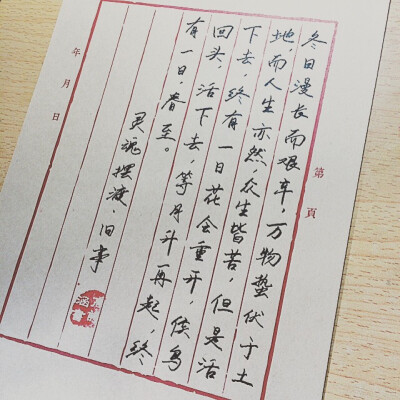 第 頁
冬日漫长而艰辛，万物蛰伏于土
地，而人生亦然，众生皆苦，但是活
下去，终有一日花会重开，候鸟
回头，活下去，等月升再起，终
有一日，春至。
灵魂摆渡·旧事
年 月 日